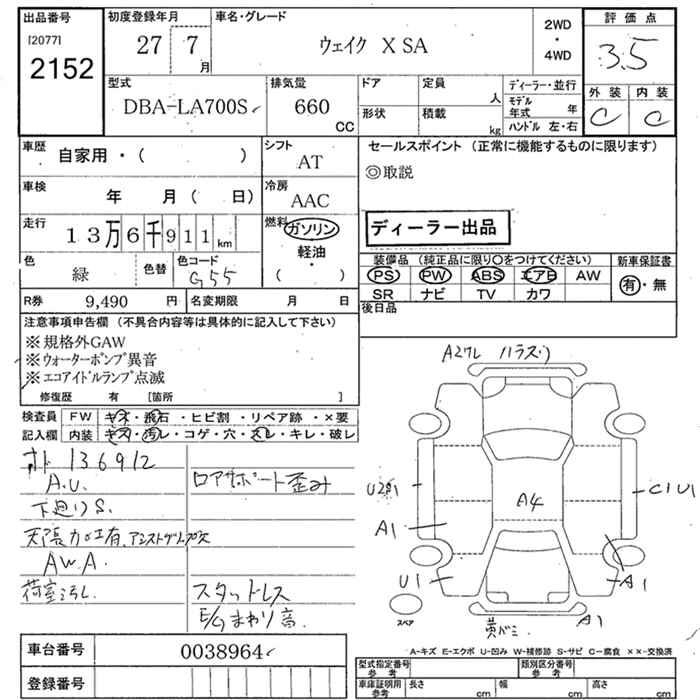 出品番号 初度登録年月 車名・グレード 2WD・4WD 評価点
[2077] 2152 27 7月 ウェイク X SA 3.5
型式 排気量 ドア 定員 人 ディーラー・並行 外装 内装
DBA-LA700S 660 CC 形状 積載 kg モデル年式 年 C C
ハンドル 左・右
車歴 自家用・( ) シフト AT セールスポイント (正常に機能するものに限ります)
◎取説
車検 年 月 ( 日) 冷房 AAC
走行 13万6千911km 燃料 ガソリン・軽油・( ) ディーラー出品
色 緑 色替 色コード G55
装備品 (純正品に限り○をつけてください) 新車保証書
PS PW ABS エアB AW 有・無
SR ナビ TV カワ
R券 9,490 円 名変期限 月 日 後日品
注意事項申告欄 (不具合内容等は具体的に記入して下さい)
※規格外GAW
※ウォーターポンプ異音
※エコアイドルランプ点滅
修復歴 有 [箇所 ]
検査員 FW キズ・飛石・ヒビ割・リペア跡・×要
記入欄 内装 キズ・汚レ・コゲ・穴・スレ・キレ・破レ
オド 136912
A.U.
ロアサポート歪み
下廻りS.
天張加工有.アシストグリップ欠
AWA.
荷室汚し
スタッドレス
E/Gまわり音
A2ワレ
U2
A4
C1 U1
A1
U1
A1
スペア
A1
A-キズ E-エクボ U-凹み W-補修跡 S-サビ C-腐食 ××-交換済
車台番号 0038964
登録番号
型式指定番号 参考 類別区分番号 参考
車庫証明用 参考 長さ cm 幅 cm 高さ cm